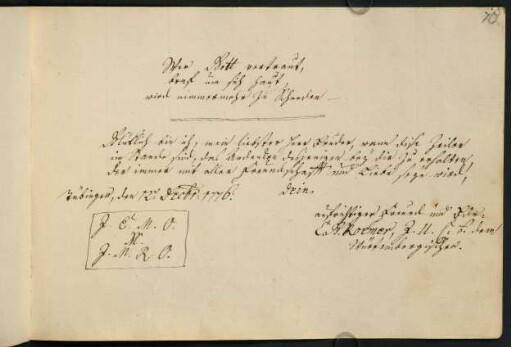 70.
Wer Gott vertraut,
brav um sich haut,
wird nimmermehr zu Schanden
Glücklich bin ich, mein liebster Herr Bruder, wann diese Zeilen
im Stande sind, das Andenken desjenigen bey dir zu erhalten
der immer mit aller Freundschafft und Liebe seyn wird,
Tübingen, den 12 Dein
aufrichtiger Freund und
J. C. M. O. Kodmer, J. U. C. dem
M. Würtembergischen.
J. M. R. O.